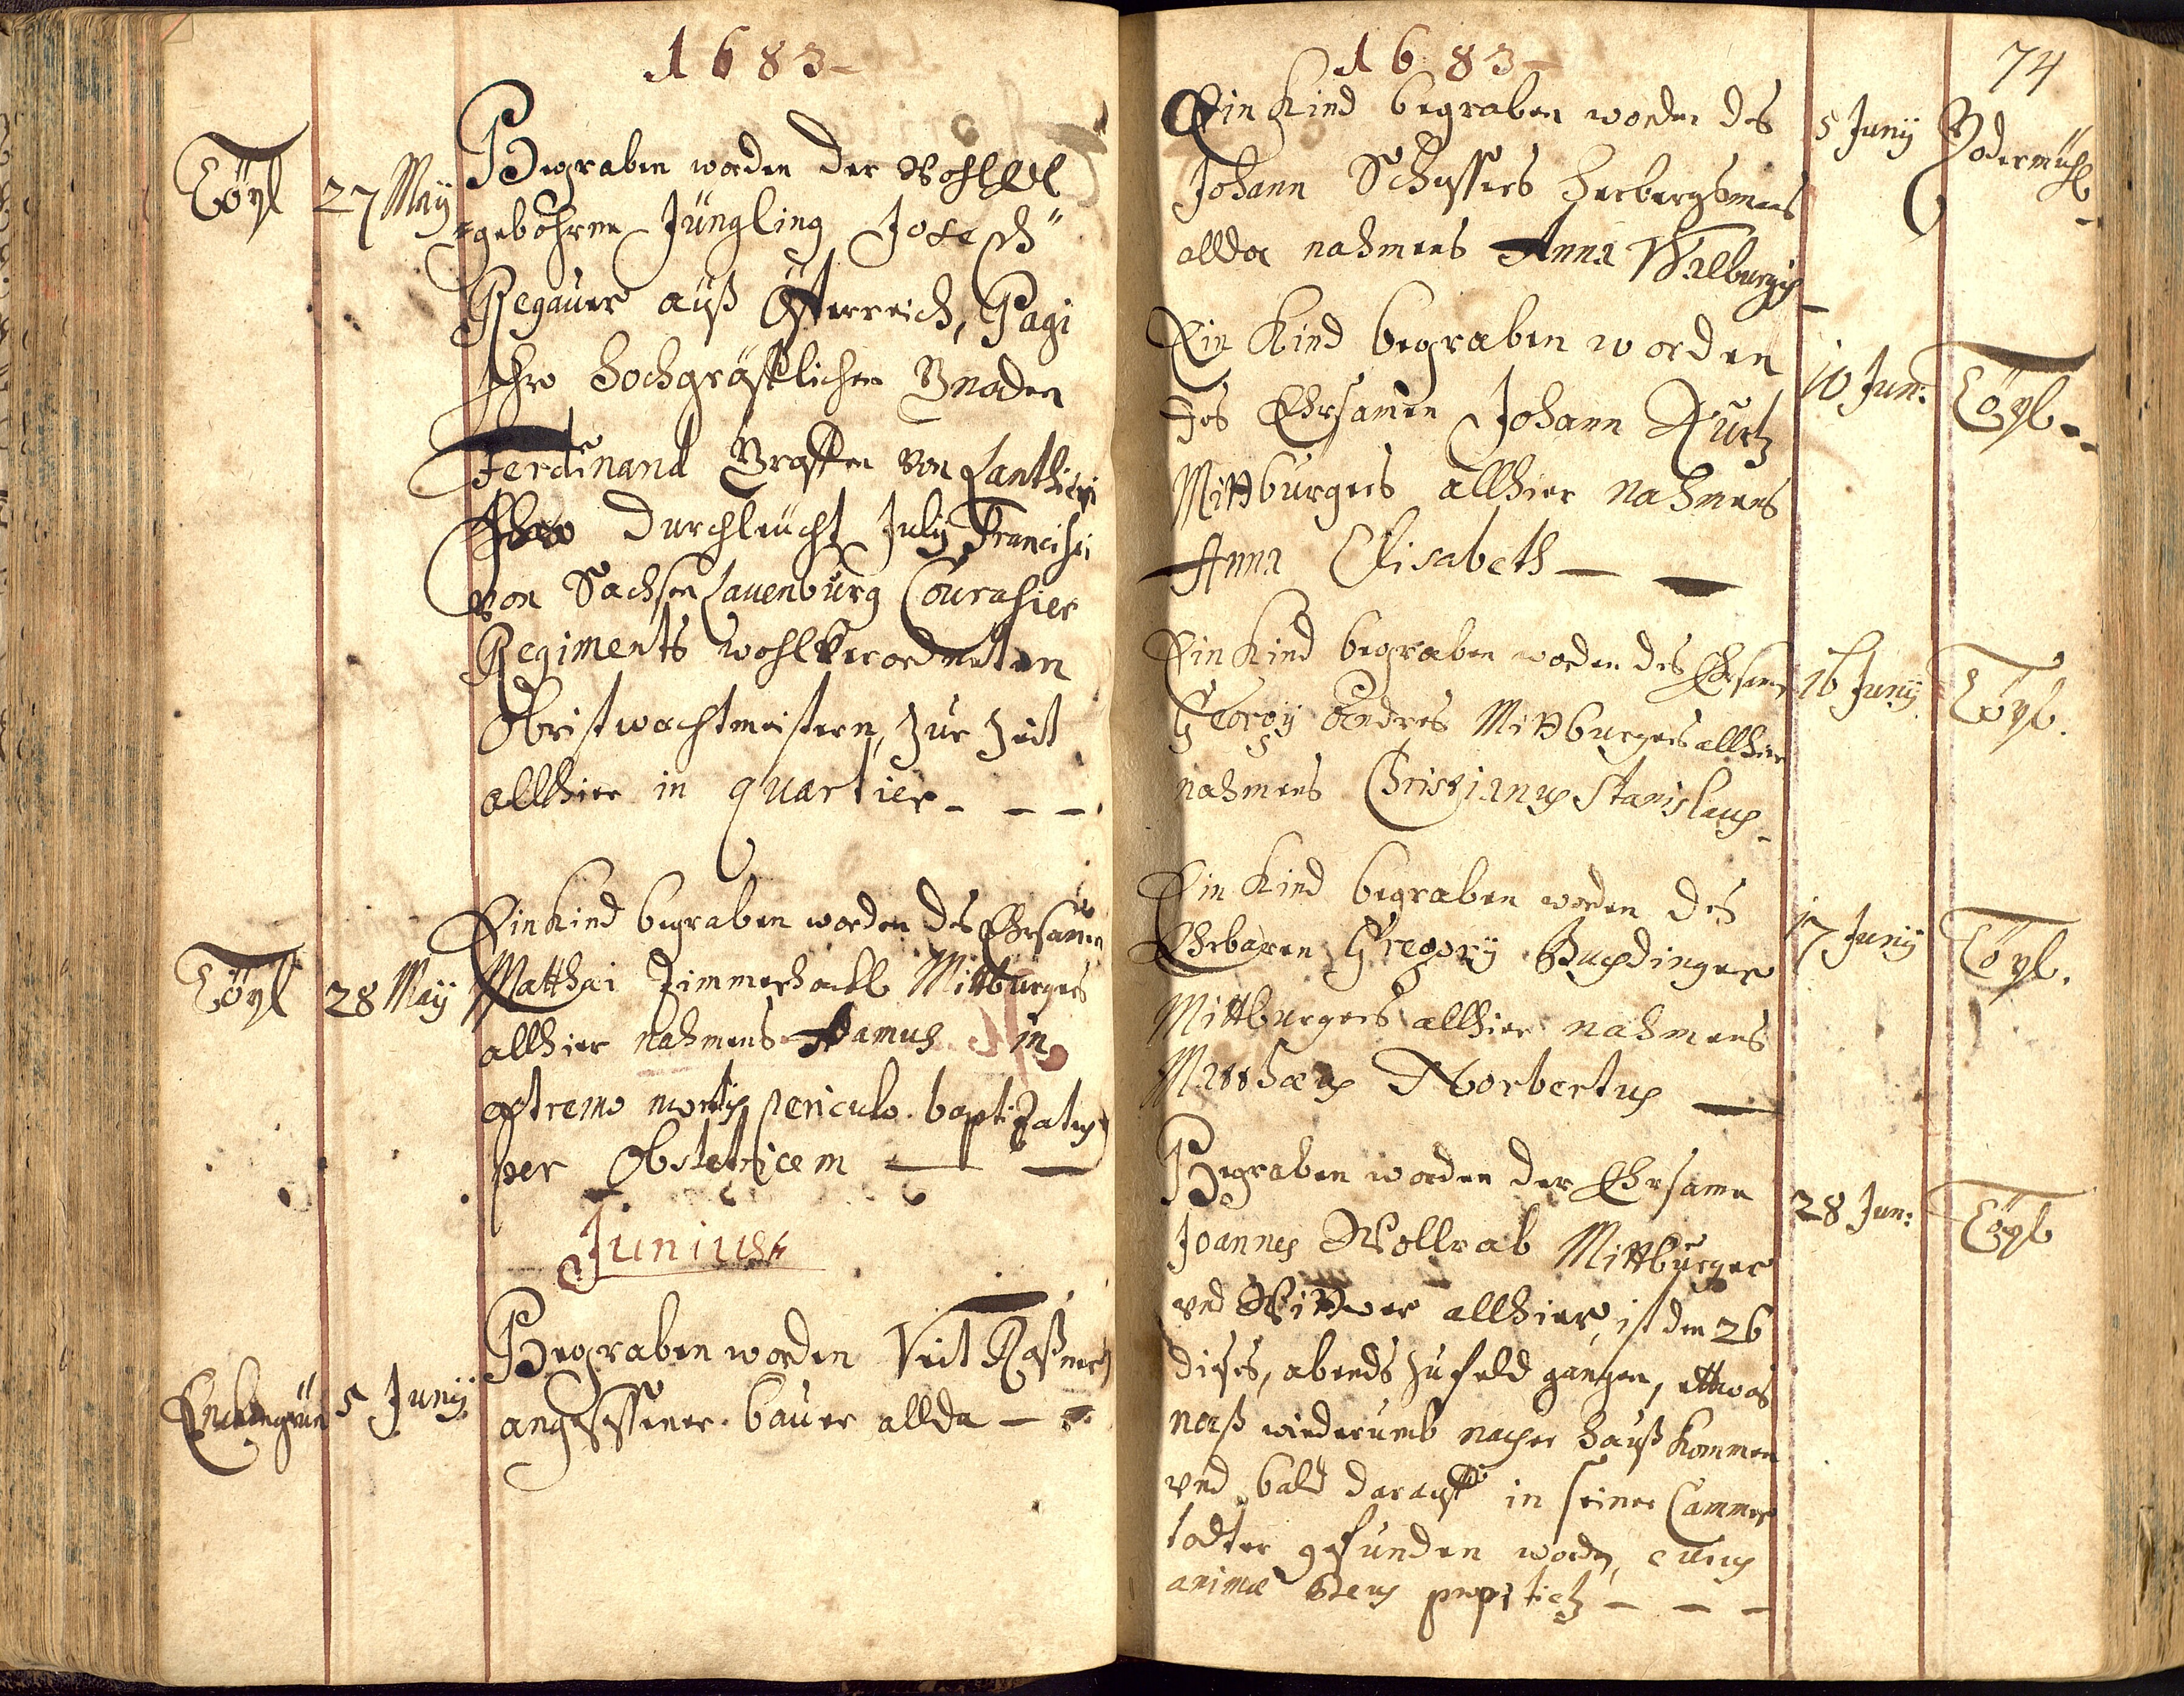 1683
Töpl
27 May
Begraben worden der WohlEdl
gebohrne Jüngling Joseph
Regauer auß Österreich, Pagi
Ihro Hochgräfflichen Gnaden
Ferdinand Graffen von Lanthieri
Ihro Durchleucht July Francisci
von Sachsen Lauenburg Courasier
Regiments wohlverordneten
Obristwachtmeistern, zur Zeit
allhier in quartier - - -
Töpl
28 May
Ein Kind begraben worden des Ehrsamen
Matthai Zimmerhackl Mittburgers
allhier nahmens Adamus in
extremo mortis periculo baptizatus
per Obstetricem
Junius
5 Junÿ
Begraben worden Veit Roßner
angesessener bauer allda -
1683
74
Ein Kind begraben worden des
5 Junÿ
Johann Schussers Herbergsmans
allda nahmens Anna Walburgis
Ein Kind begraben worden
10 Jun:
Töpl
des Ehrsamen Johann Kurtz
Mittburgers allhier nahmens
Anna Elisabeth
Ein Kind begraben worden des Ehrsamen
16 Junÿ
Töpl.
Georgÿ Andres Mittburgers allhier
nahmens Christianus Stanislaus
Ein Kind begraben worden des
17 Junÿ
Töpl.
Ehrbaren Gregorÿ
Mittburgers allhier nahmens
Matthæus Norbertus
Begraben worden der Ehrsame
28 Jun:
Töpl
Joannes Wollrab Mittburger
vnd Wittwer allhier, ist den 26
dises, abends zu feld gangen, ettwas
naß wiederumb nacher Hauß kommen
vnd bald darauff in seiner Cammer
todter gefunden worden, cuius
animæ Deus propitietur - - -